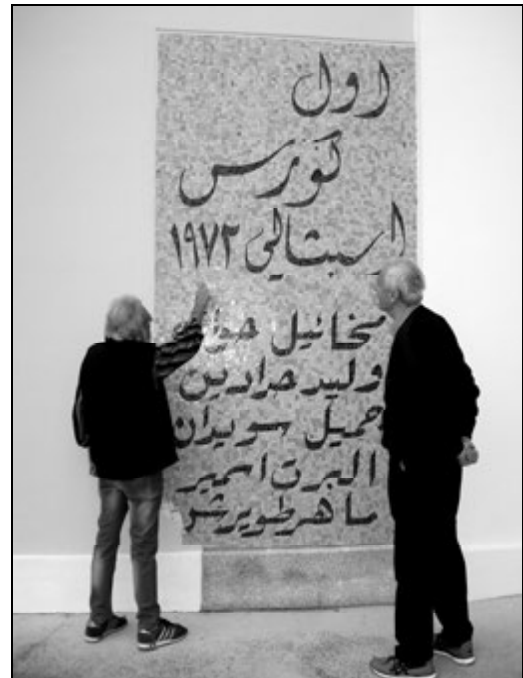 اول
كورس
اسبثالي ١٩٧٢
مخائيل
وليد حدادين
جميل سويدان
البرت اسمير
ماهر طوبرشو